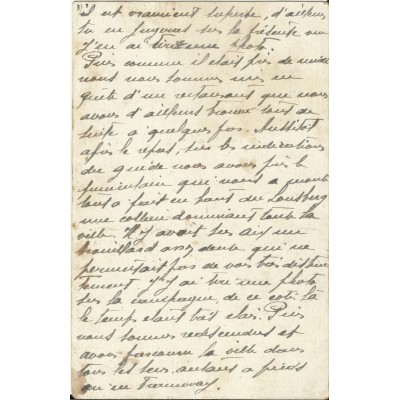 il est vraiment superbe, d'ailleurs
tu en jugeras sur la présente vu
j'en ai tiré une photo.
Puis comme il était près de midi
nous nous sommes mis en
quête d'un restaurant que nous
avons d'ailleurs trouvé tout de
suite à quelques pas. Aussitôt
après le repas, sur les indications
du guide nous avons pris le
funiculaire qui nous a monté
tout à fait en haut du Lousberg
une colline dominant toute la
ville. Il y avait sur Aix un
brouillard assez dense qui ne
permettait pas de voir très distinc
tement. J'y ai tiré une photo
sur la campagne, de ce coté là
le temps était très clair. Puis
nous sommes redescendus et
avons parcouru la ville dans
tous les sens autant à pieds
qu'en Tramway.